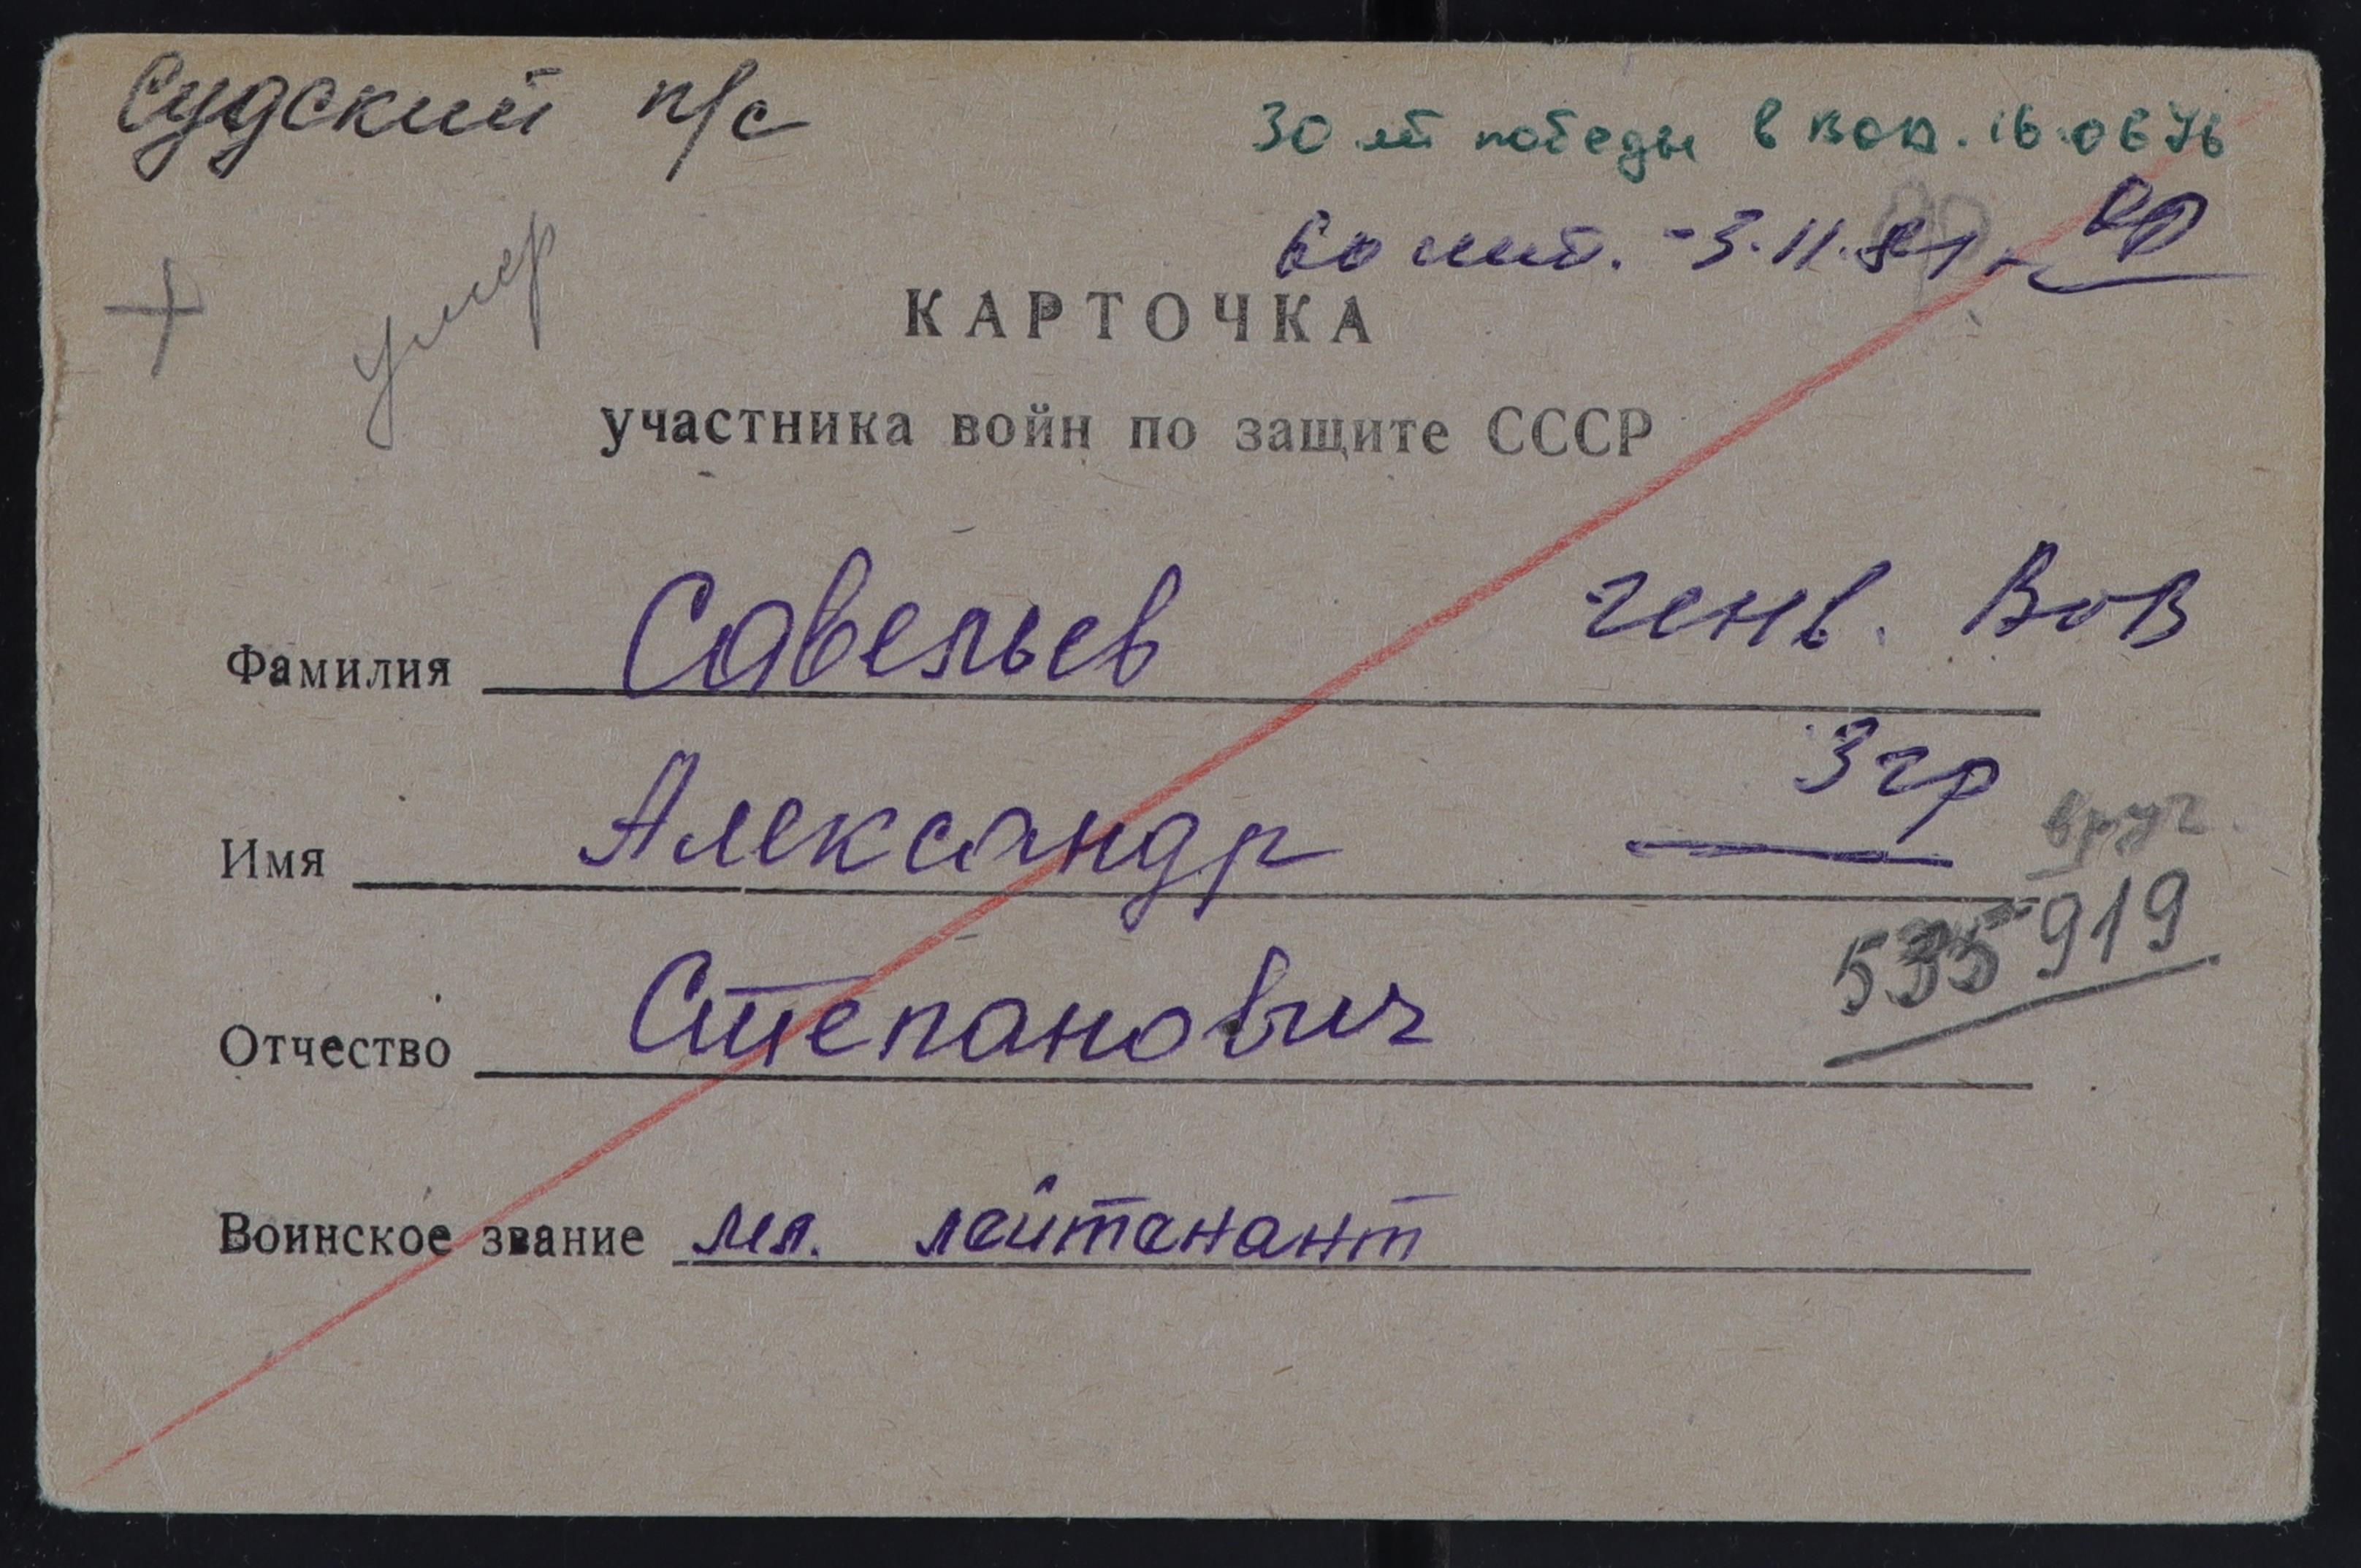 Судский п/с
30 лет победы в ВОВ. 16.06.76
60 лет. - 3.11.81г.
умер
КАРТОЧКА
участника войн по защите СССР
Фамилия Савельев
ВОВ
Имя Александр
3 гр
вруч.
535919
Отчество Степанович
Воинское звание мл. лейтенант